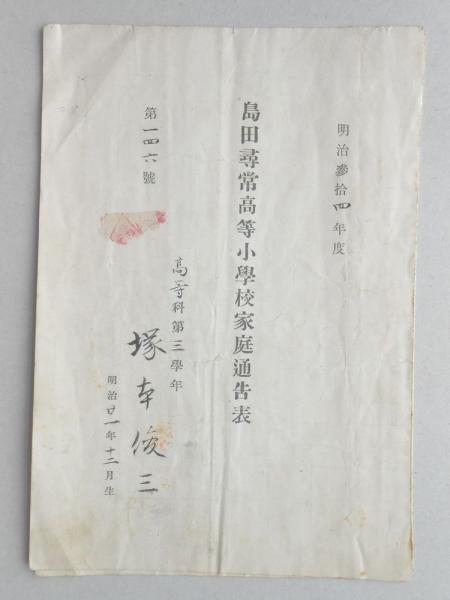 明治參拾四年度
島田尋常高等小學校家庭通告表
第一四六號
高等科第三學年
塚本俊三
明治廿一年十二月生